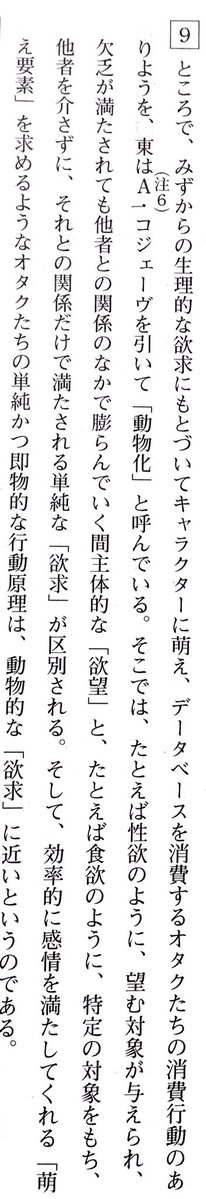 9 ところで、みずからの生理的な欲求にもとづいてキャラクターに萌え、データベースを消費するオタクたちの消費行動のあ
りようを、東は(注6)A・コジェーヴを引いて「動物化」と呼んでいる。そこでは、たとえば性欲のように、望む対象が与えられ、
欠乏が満たされても他者との関係のなかで膨らんでいく間主体的な「欲望」と、たとえば食欲のように、特定の対象をもち、
他者を介さずに、それとの関係だけで満たされる単純な「欲求」が区別される。そして、効率的に感情を満たしてくれる「萌
え要素」を求めるようなオタクたちの単純かつ即物的な行動原理は、動物的な「欲求」に近いというのである。